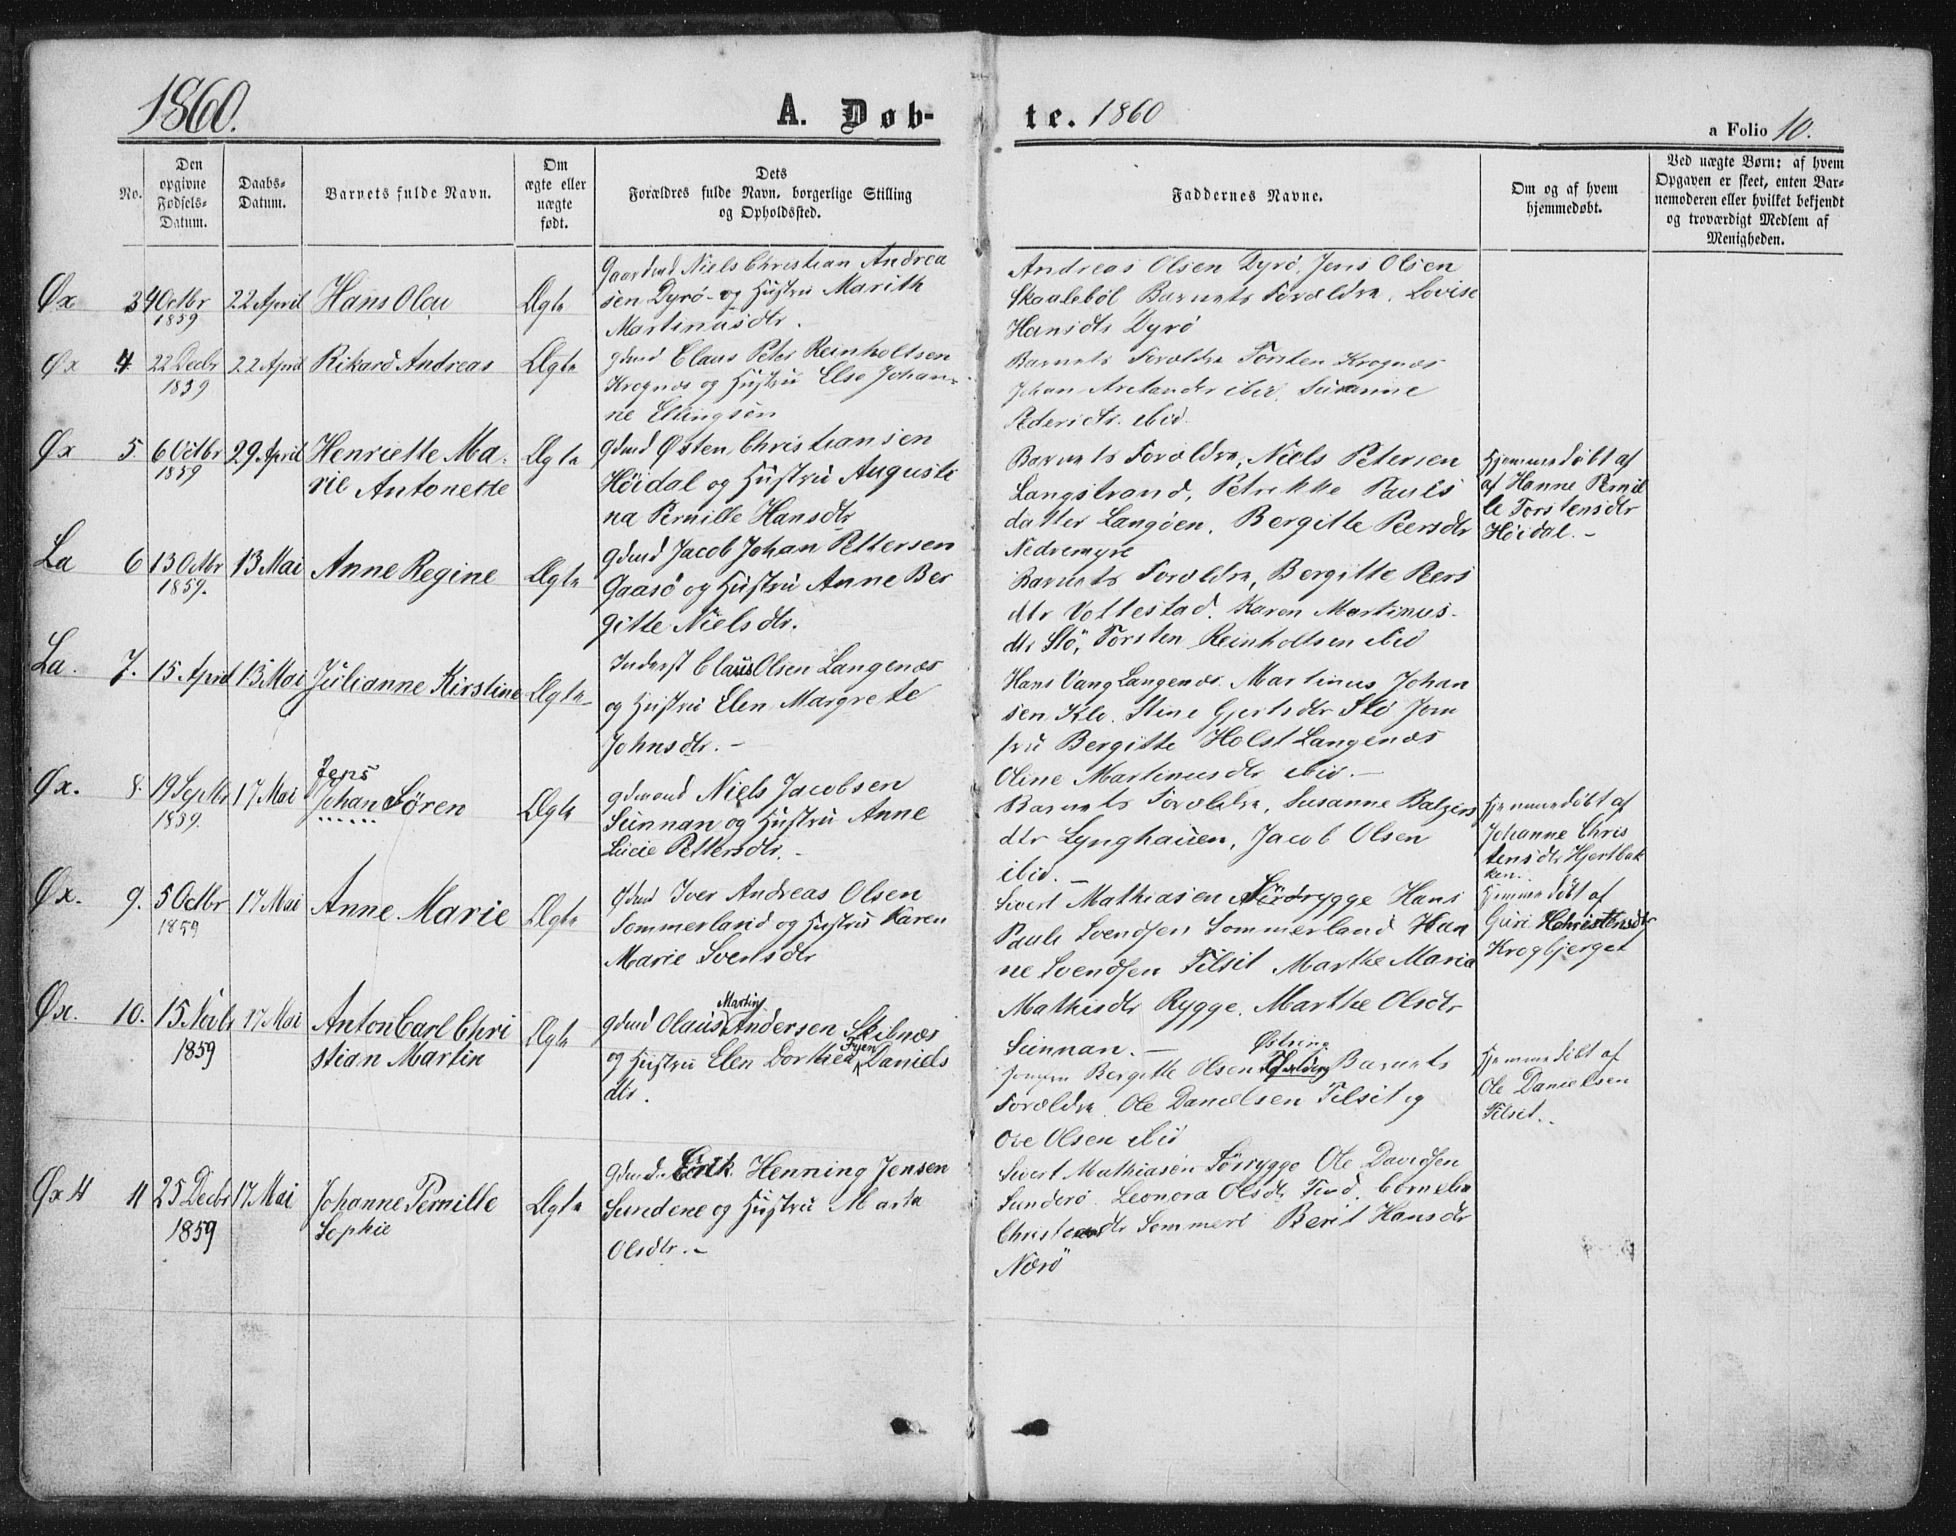 1860.
A. Døb-
te. 1860
a Folio 10.
No.
Den opgivne Fødsels-Datum.
Daabs-Datum.
Barnets fulde Navn.
Om ægte eller uægte født.
Dets Forældres fulde Navn, borgerlige Stilling og Opholdssted.
Faddernes Navne.
Om og af hvem hjemmedøbt.
Ved uægte Børn: af hvem Opgaven er skeet, enten Barnemoderen eller hvilket bekjendt og troværdigt Medlem af Menigheden.
Øx 3 4 Octbr 1859 22 April Hans Olau Ægte
Gaardmd Niels Christian Andrea
sen Dyrö og Hustru Marith
Martinusdtr.
Andreas Olsen Dyrö, Jens Olsen
Skaaleböl Barnets Forældre, Lovise
Hansdtr Dyrö
Øx 4 22 Decbr 1859 22 April Rikard Andreas Ægte
Gdmd Claus Peter Reinholtsen
Krognæs og Hustru Else Johan-
ne Ellingsen
Barnets Forældre Torsten Krognæs
Johan ibid. Susanne
Pedersdtr. ibid.
Øx 5. 6 Octbr 1859 29 April Henriette Ma-
rie Antonette Ægte
Gdmd Østen Christiansen
Höidal og Hustru Augusti
na Pernille Hansdtr
Barnets Forældre, Niels Petersen
Langstrand, Petrikke Pauls
datter Langöen, Bergitte Peersdtr
Nedremyre
Hjemmedöbt af
af Hanne Pernil
le Torstensdtr
Höidal.-
La 6 13 Octbr 1859. 13 Mai Anne Regine Ægte
Gdmd Jacob Johan Pettersen
Gaasö og Hustru Anne Ber
gitte Nielsdtr.
Barnets Forældre, Bergitte Peers
dtr Vottestad. Karen Martinus-
dtr Stö, Torsten Reinholtsen ibid
La. 7. 15 April 13 Mai Julianne Kirstine Ægte
Inderst Claus Olsen Langenæs
og Hustru Elen Margrete
Johnsdtr.-
Hans Vang Langenæs. Martinus Johan
sen Klo. Stine Gjertsdtr Stö Jom
fru Bergitte Holst Langenæs
Oline Martinusdtr ibid.-
Øx. 8. 19 Septbr 1859. 17 Mai Jens
Johan Sören Ægte
Gdmand Niels Jacobsen
Sunnan og Hustru Anne
Lucie Pettersdtr.-
Barnets Forældre, Susanne Balzers
dtr Lynghauen, Jacob Olsen
ibid.-
Hjemmedöbt af
Johanne Chris
tensdtr Hjertbak
ken.
Øx. 9. 5 Octbr 1859 17 Mai Anne Marie Ægte
Gdmd Iver Andreas Olsen
Sommerland og Hustru Karen
Marie Svensdtr
Sivert Mathiasen Hans
Pauli Svendsen Sommerland Han
ne Svendsen Tilsit Marthe Maria
Mathisdtr Rygge. Marthe Olsdtr
Sunnan.-
Hjemmedöbt af
Guri
Krogbjerget
Øx. 10. 15 Novbr 1859 17 Mai Anton Carl Chri
stian Martin Ægte
Gdmd Olaus Martin Andersen Skibnæs
og Hustru Elen Dorthea Fyen Daniels
dtr.
Jomfru Bergitte Olsen Barnets
Forældre. Ole Danielsen Tilsit og
Ove Olsen ibid
Hjemmedöbt af
Ole Danielsen
Tilsit..
Øx 11 25 Decbr 1859 17 Mai Johanne Pernille
Sophie Ægte
Gdmd. Erik Henning Jensen
Sundene og Hustru Marta
Olsdtr.-
Sivert Mathiasen Sörrygge Ole Davidsen
Sunderö. Leonora Olsdtr Cornelia
Sommerö Berit Hansdtr
Nærö